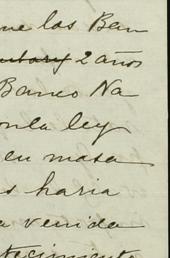 que los Ban
2 años
Banco Na
on la ley
en masa
s haria
a venida
tecimiento